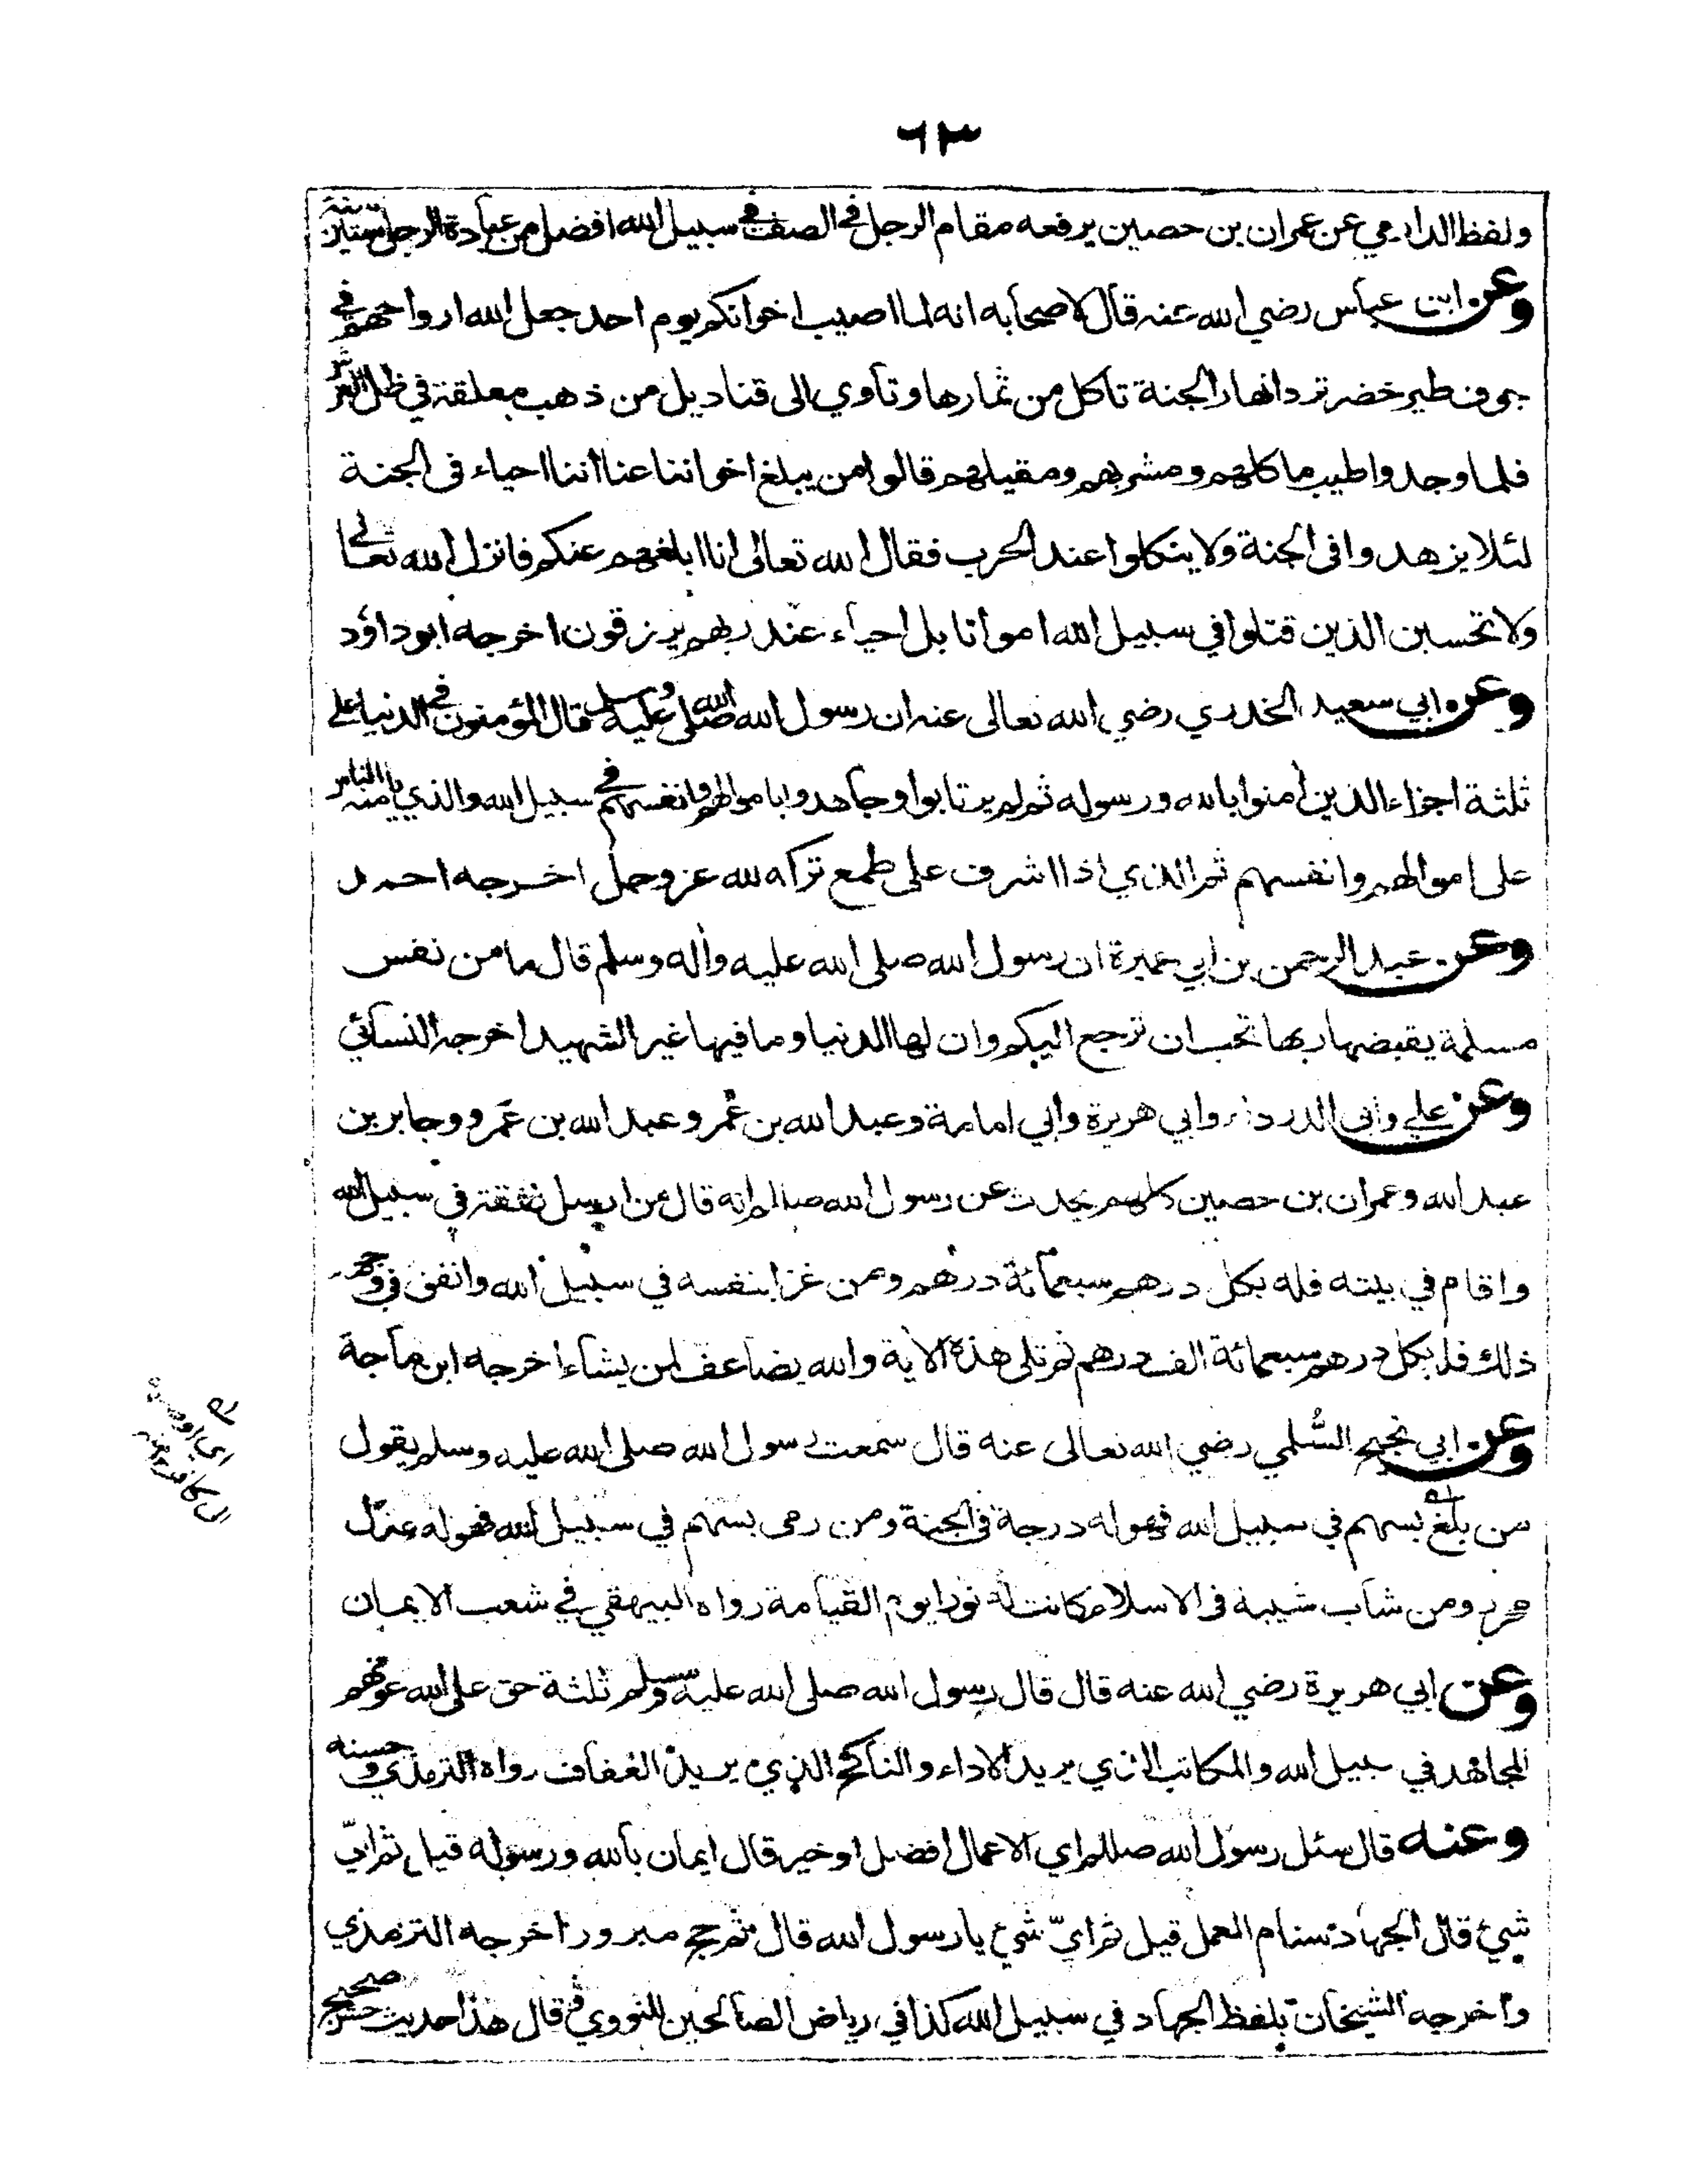 ٦٣
ولفظ الدارمي عن عمران بن حصين يرفعه مقام الرجل في الصف في سبيل الله افضل من عبادة الرجل ستين سنة
وعن ابن عباس رضي الله عنه قال لاصحابه انه لما اصيب اخوانكم يوم احد جعل الله ارواحهم في
جوف طير خضر ترد انهار الجنة تاكل من ثمارها وتاوي الى قناديل من ذهب معلقة في ظل العرش
فلما وجدوا طيب ماكلهم ومشربهم ومقيلهم قالوا من يبلغ اخواننا عنا اننا احياء في الجنة
لئلا يزهدوا في الجنة ولا ينكلوا عند الحرب فقال الله تعالى انا ابلغهم عنكم فانزل الله تعالى
ولا تحسبن الذين قتلوا في سبيل الله امواتا بل احياء عند ربهم يرزقون اخرجه ابوداؤد
وعن ابي سعيد الخدري رضي الله تعالى عنه ان رسول الله صلى الله عليه وسلم قال المؤمنون في الدنيا على
ثلثة اجزاء الذين أمنوا بالله ورسوله ثم لم يرتابوا وجاهدوا باموالهم وانفسهم في سبيل الله والذي يامنه الناس
على اموالهم وانفسهم ثم الذي اذا اشرف على طمع تركه لله عز وجل اخرجه احمد
وعن عبد الرحمن بن ابي عميرة ان رسول الله صلى الله عليه وأله وسلم قال ما من نفس
مسلمة يقبضها ربها تحب ان ترجع اليكم وان لها الدنيا وما فيها غير الشهيد اخرجه النسائي
وعن علي وابي الدرداء وابي هريرة وابي امامة وعبد الله بن عُمر وعبد الله بن عَمرو وجابر بن
عبد الله وعمران بن حصين كلهم يحدث عن رسول الله صللم انه قال من ارسل نفقة في سبيل الله
واقام في بيته فله بكل درهم سبعمائة درهم ومن غزا بنفسه في سبيل الله وانفق في وجهه
ذلك فله بكل درهم سبعمائة الف درهم ثم تلى هذه الأية والله يضاعف لمن يشاء اخرجه ابن ماجة
وعن ابي نجيح السُّلمي رضي الله تعالى عنه قال سمعت رسول الله صلى الله عليه وسلم يقول
من بلغ بسهم في سبيل الله فهو له درجة في الجنة ومن رمى بسهم في سبيل الله فهو له عدل
محرر ومن شاب شيبة في الاسلام كانت له نورا يوم القيامة رواه البيهقي في شعب الايمان
وعن ابي هريرة رضي الله عنه قال قال رسول الله صلى الله عليه وسلم ثلثة حق على الله عونهم
المجاهد في سبيل الله والمكاتب الذي يريد الاداء والناكح الذي يريد العفاف رواه الترمذي وحسنه
وعنه قال سئل رسول الله صللم اي الاعمال افضل او خير قال ايمان بالله ورسوله قيل ثم ايّ
شيئ قال الجهاد سنام العمل قيل ثم ايّ شيئ يا رسول الله قال ثم حج مبرور اخرجه الترمذي
واخرجه الشيخان بلفظ الجهاد في سبيل الله كذا في رياض الصالحين للنووي قال هذا حديث حسن صحيح